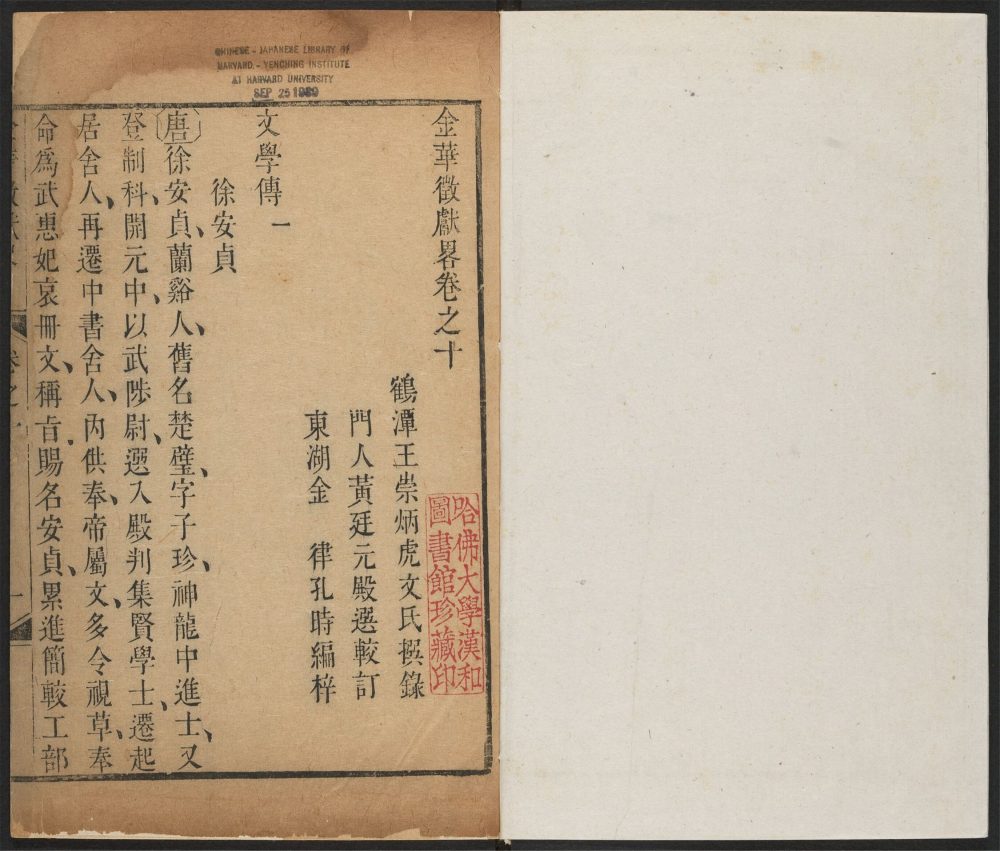 CHINESE - JAPANESE LIBRARY OF
HARVARD - YENCHING INSTITUTE
AT HARVARD UNIVERSITY
SEP 25 1939
金華徵獻畧卷之十
鶴潭王崇炳虎文氏撰錄
門人黃廷元殿選較訂
東湖金 律孔時編梓
哈佛大學漢和
圖書館珍藏印
文學傳一
徐安貞
唐徐安貞、蘭谿人、舊名楚璧、字子珍、神龍中進士、又
登制科、開元中、以武陟尉、選入殿判集賢學士、遷起
居舍人、再遷中書舍人、內供奉、帝屬文、多令視草、奉
命爲武惠妃哀冊文、稱旨賜名安貞、累進簡較工部
卷之十
一